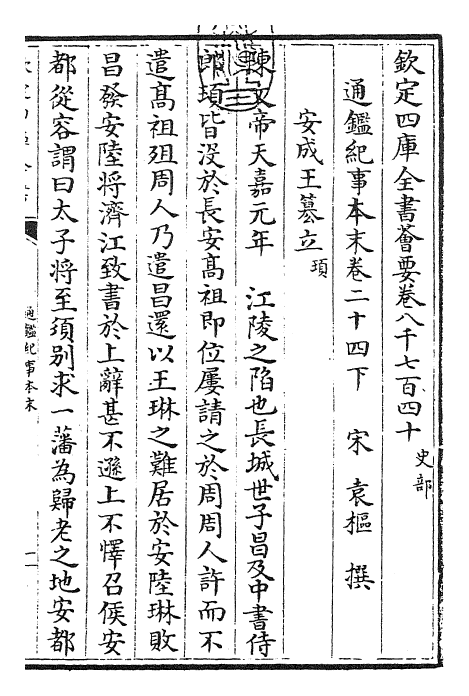 欽定四庫全書薈要卷八千七百四十 史部
通鑑紀事本末卷二十四下 宋 袁樞 撰
安成王篡立 頊
陳文帝天嘉元年 江陵之陷也長城世子昌及中書侍
郎頊皆沒於長安高祖即位屢請之於周周人許而不
遣高祖殂周人乃遣昌還以王琳之難居於安陸琳敗
昌發安陸將濟江致書於上辭甚不遜上不懌召侯安
都從容謂曰太子將至須別求一藩為歸老之地安都
通鑑紀事本末